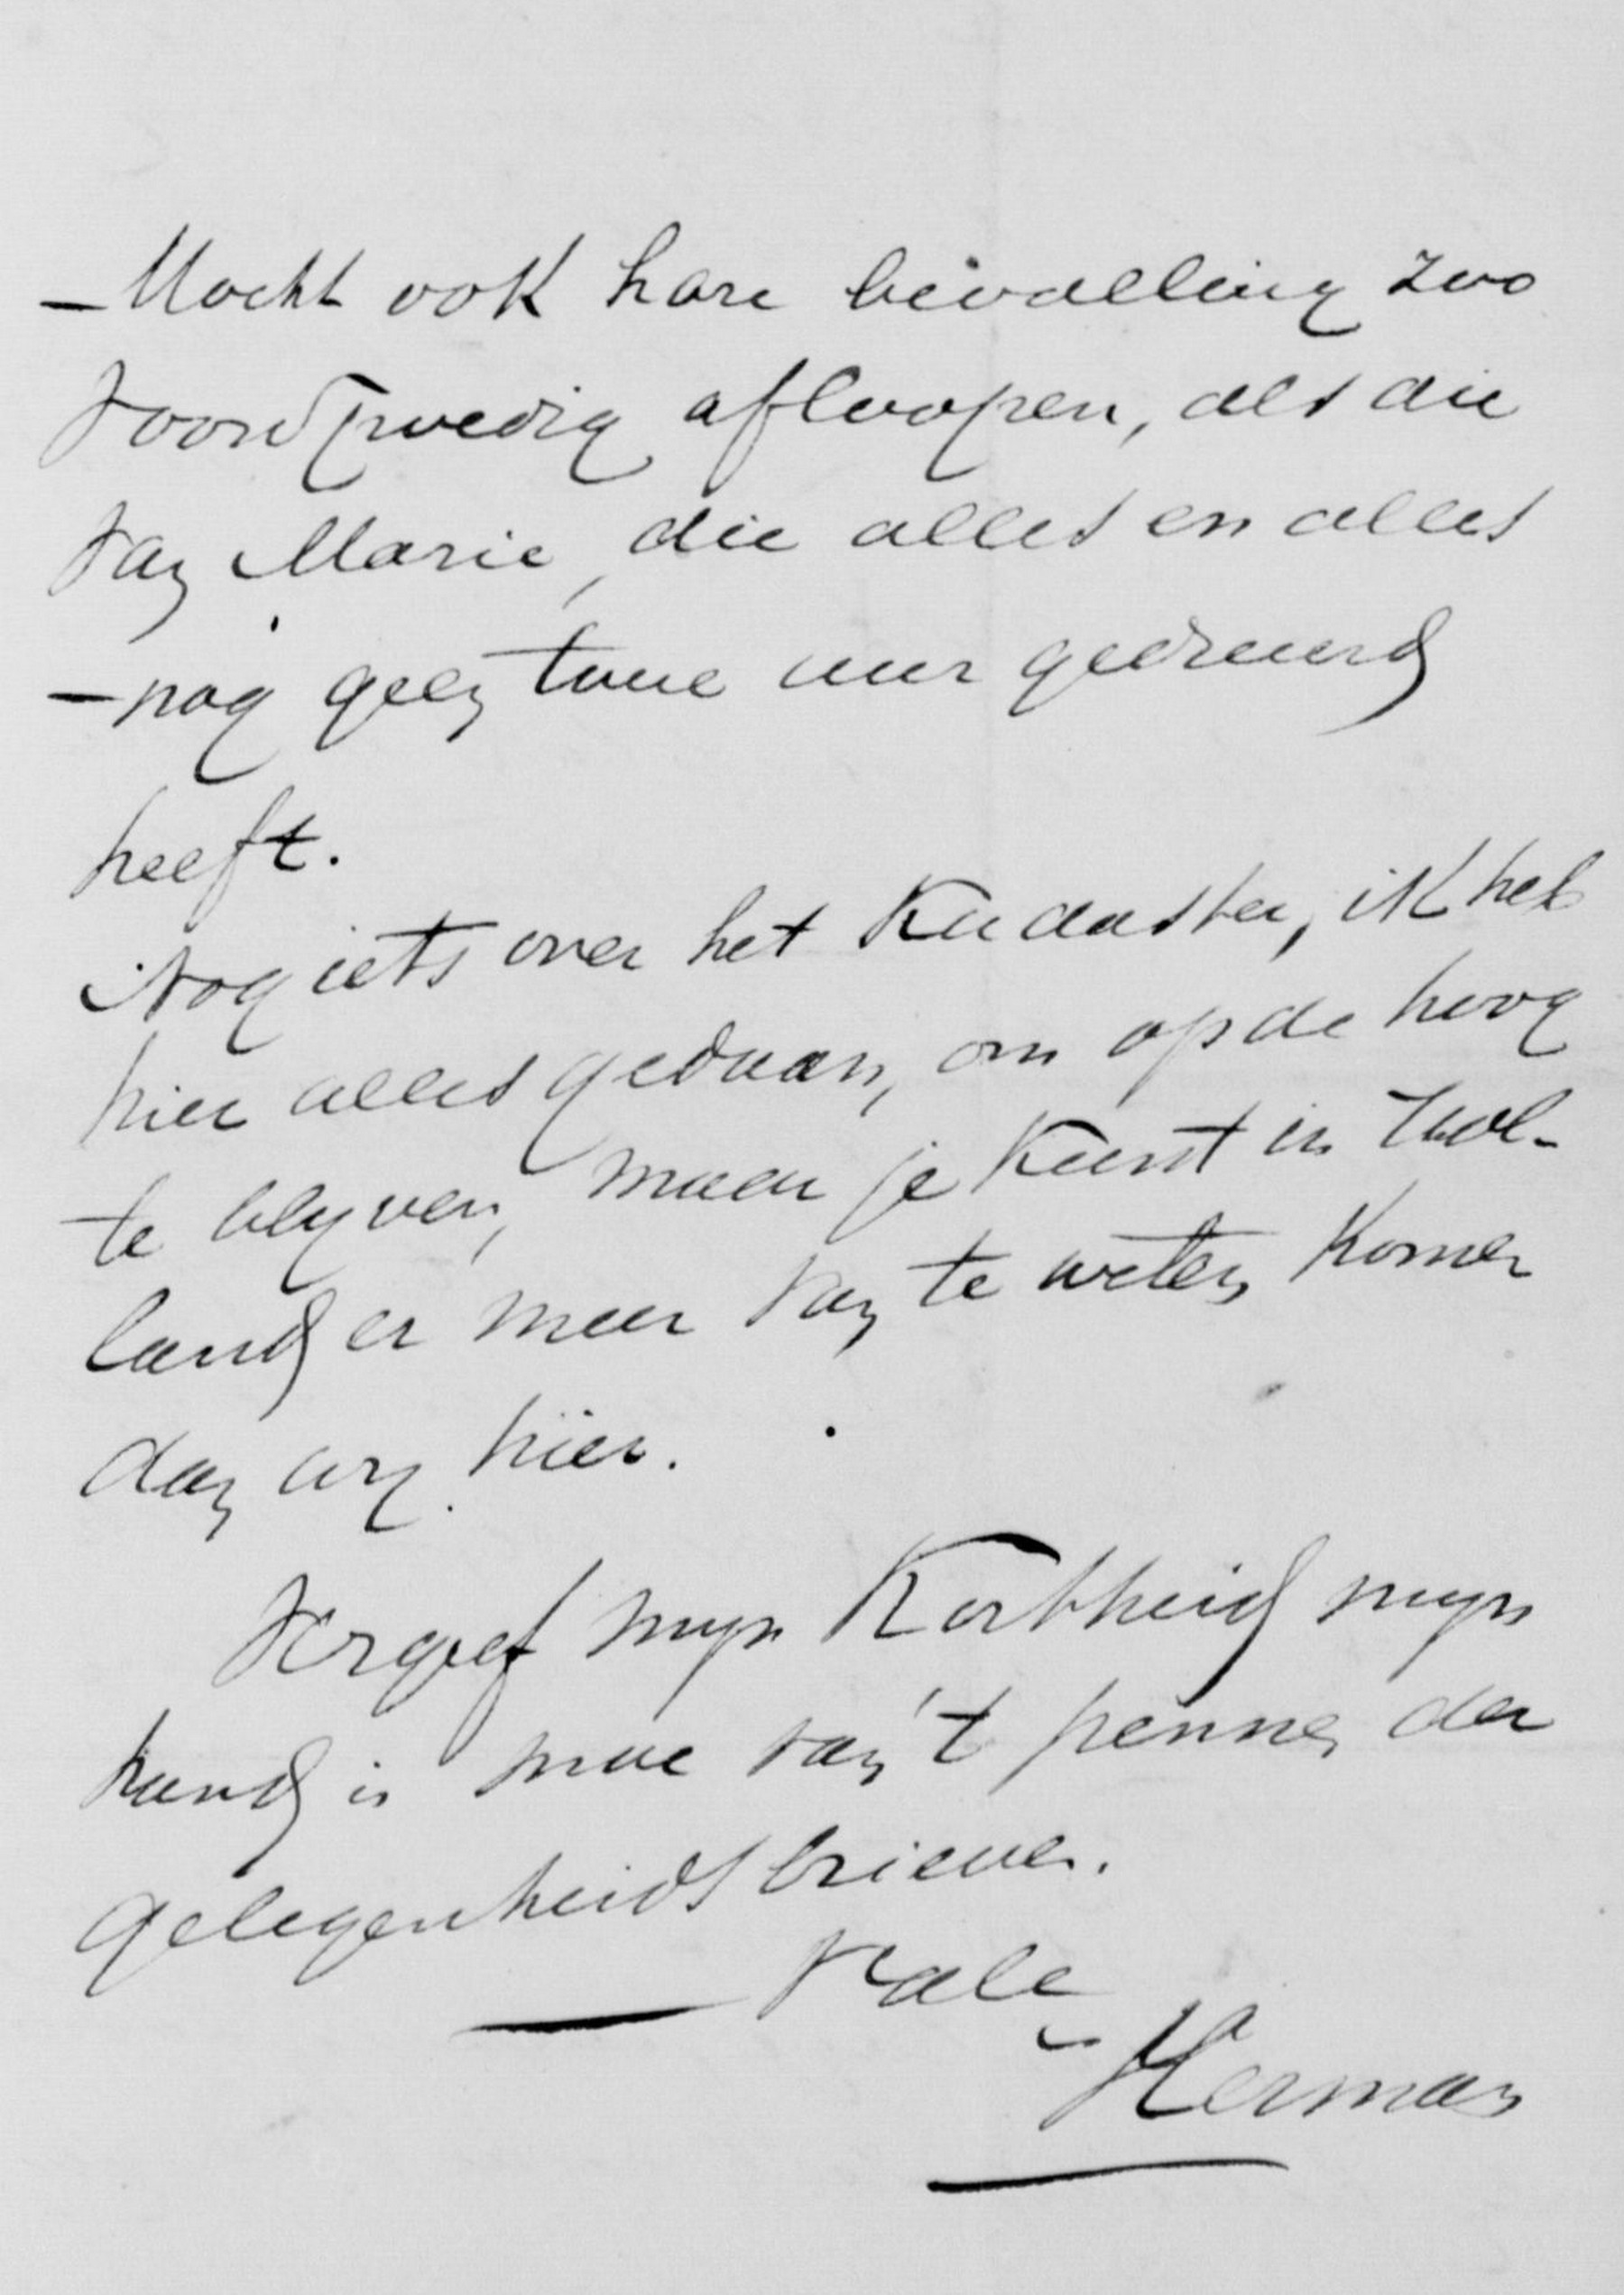 Mocht ook hare bevalling zoo
voorspoedig afloopen, als die
van Marie, die alles en alles
nog geen twee uur geduurd
heeft.
Nog iets over het Kadaster, ik heb
hier alles gedaan, om op de hoog
te blyven, maar je kunt in Hol-
land er meer van te weten komen
dan wy hier.
Vergeef myn Kortheid myn
hand is moe van 't pennen der
gelegenheidsbrieven.
Vale
Herman